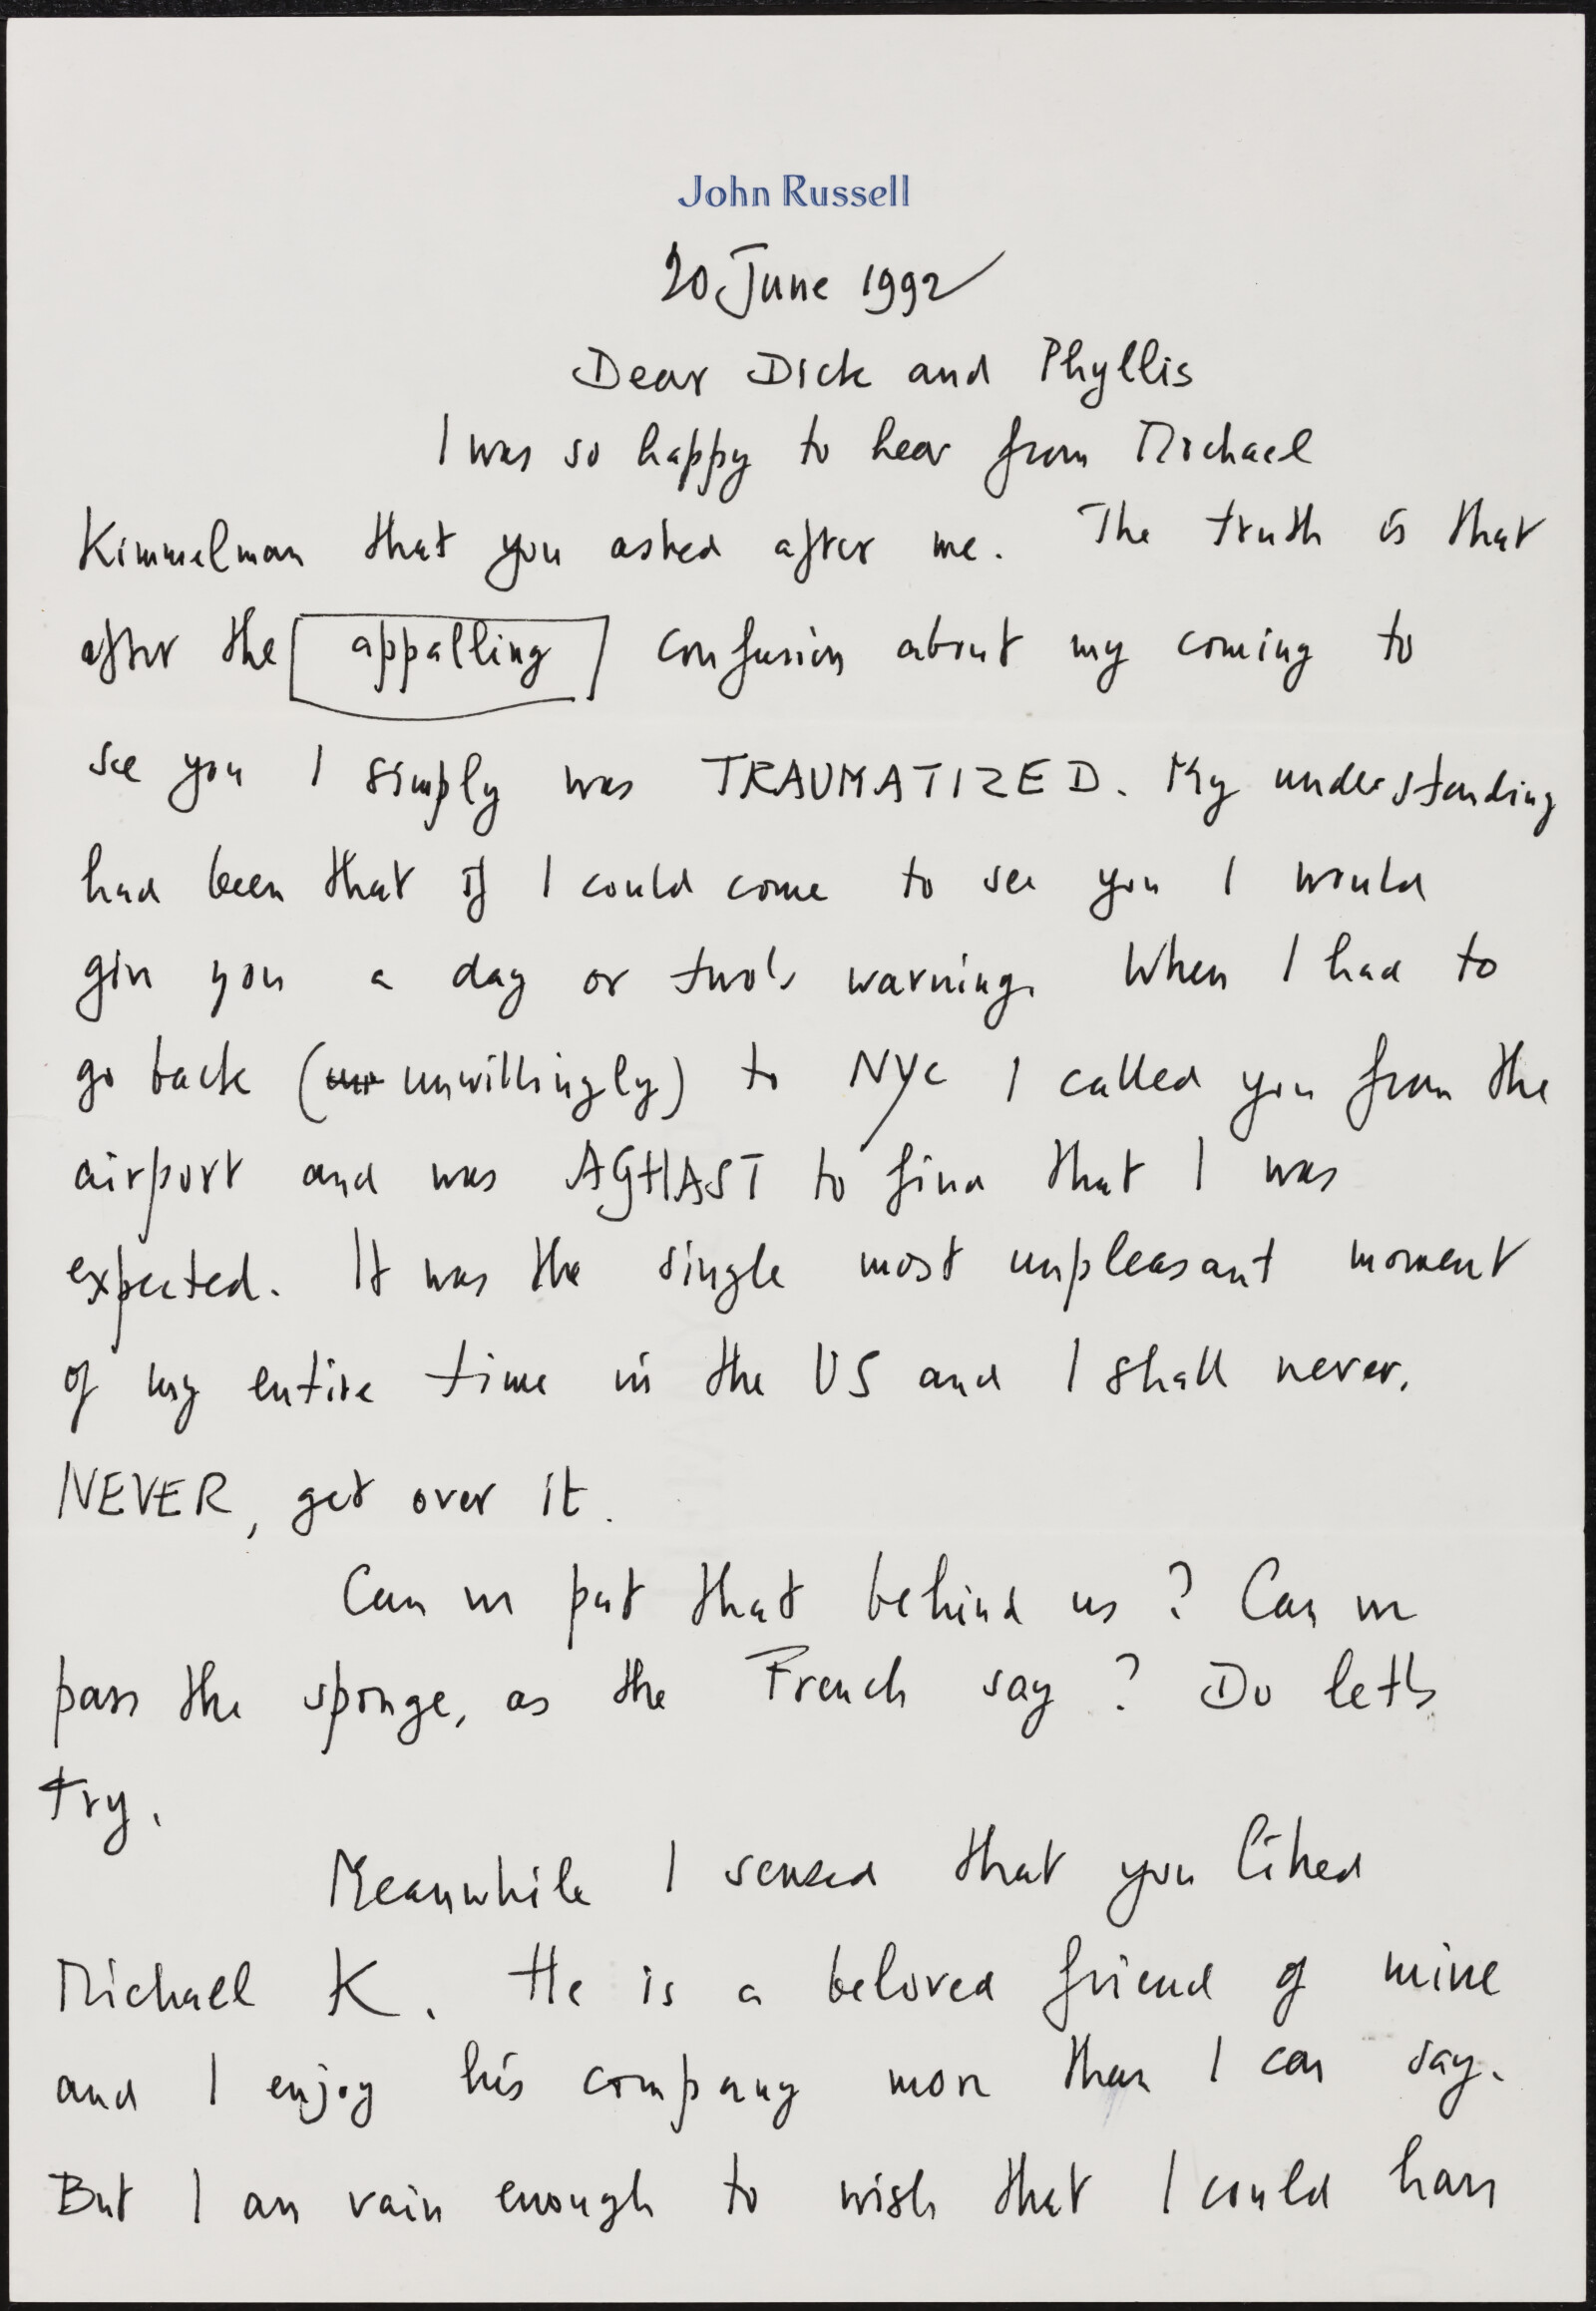 John Russell
20 June 1992
Dear Dick and Phyllis
I was so happy to hear from Michael
Kimmelman that you asked after me. The truth is that
after the appalling confusion about my coming to
see you I simply was TRAUMATIZED. My understanding
had been that if I could come to see you I would
give you a day or two's warning. When I had to
go back (un unwillingly) to NYC I called you from the
airport and was AGHAST to find that I was
expected. It was the single most unpleasant moment
of my entire time in the US and I shall never,
NEVER, get over it.
Can we put that behind us? Can we
pass the sponge, as the French say? Do let's
try.
Meanwhile I sensed that you liked
Michael K. He is a beloved friend of mine
and I enjoy his company more than I can say.
But I am vain enough to wish that I could have